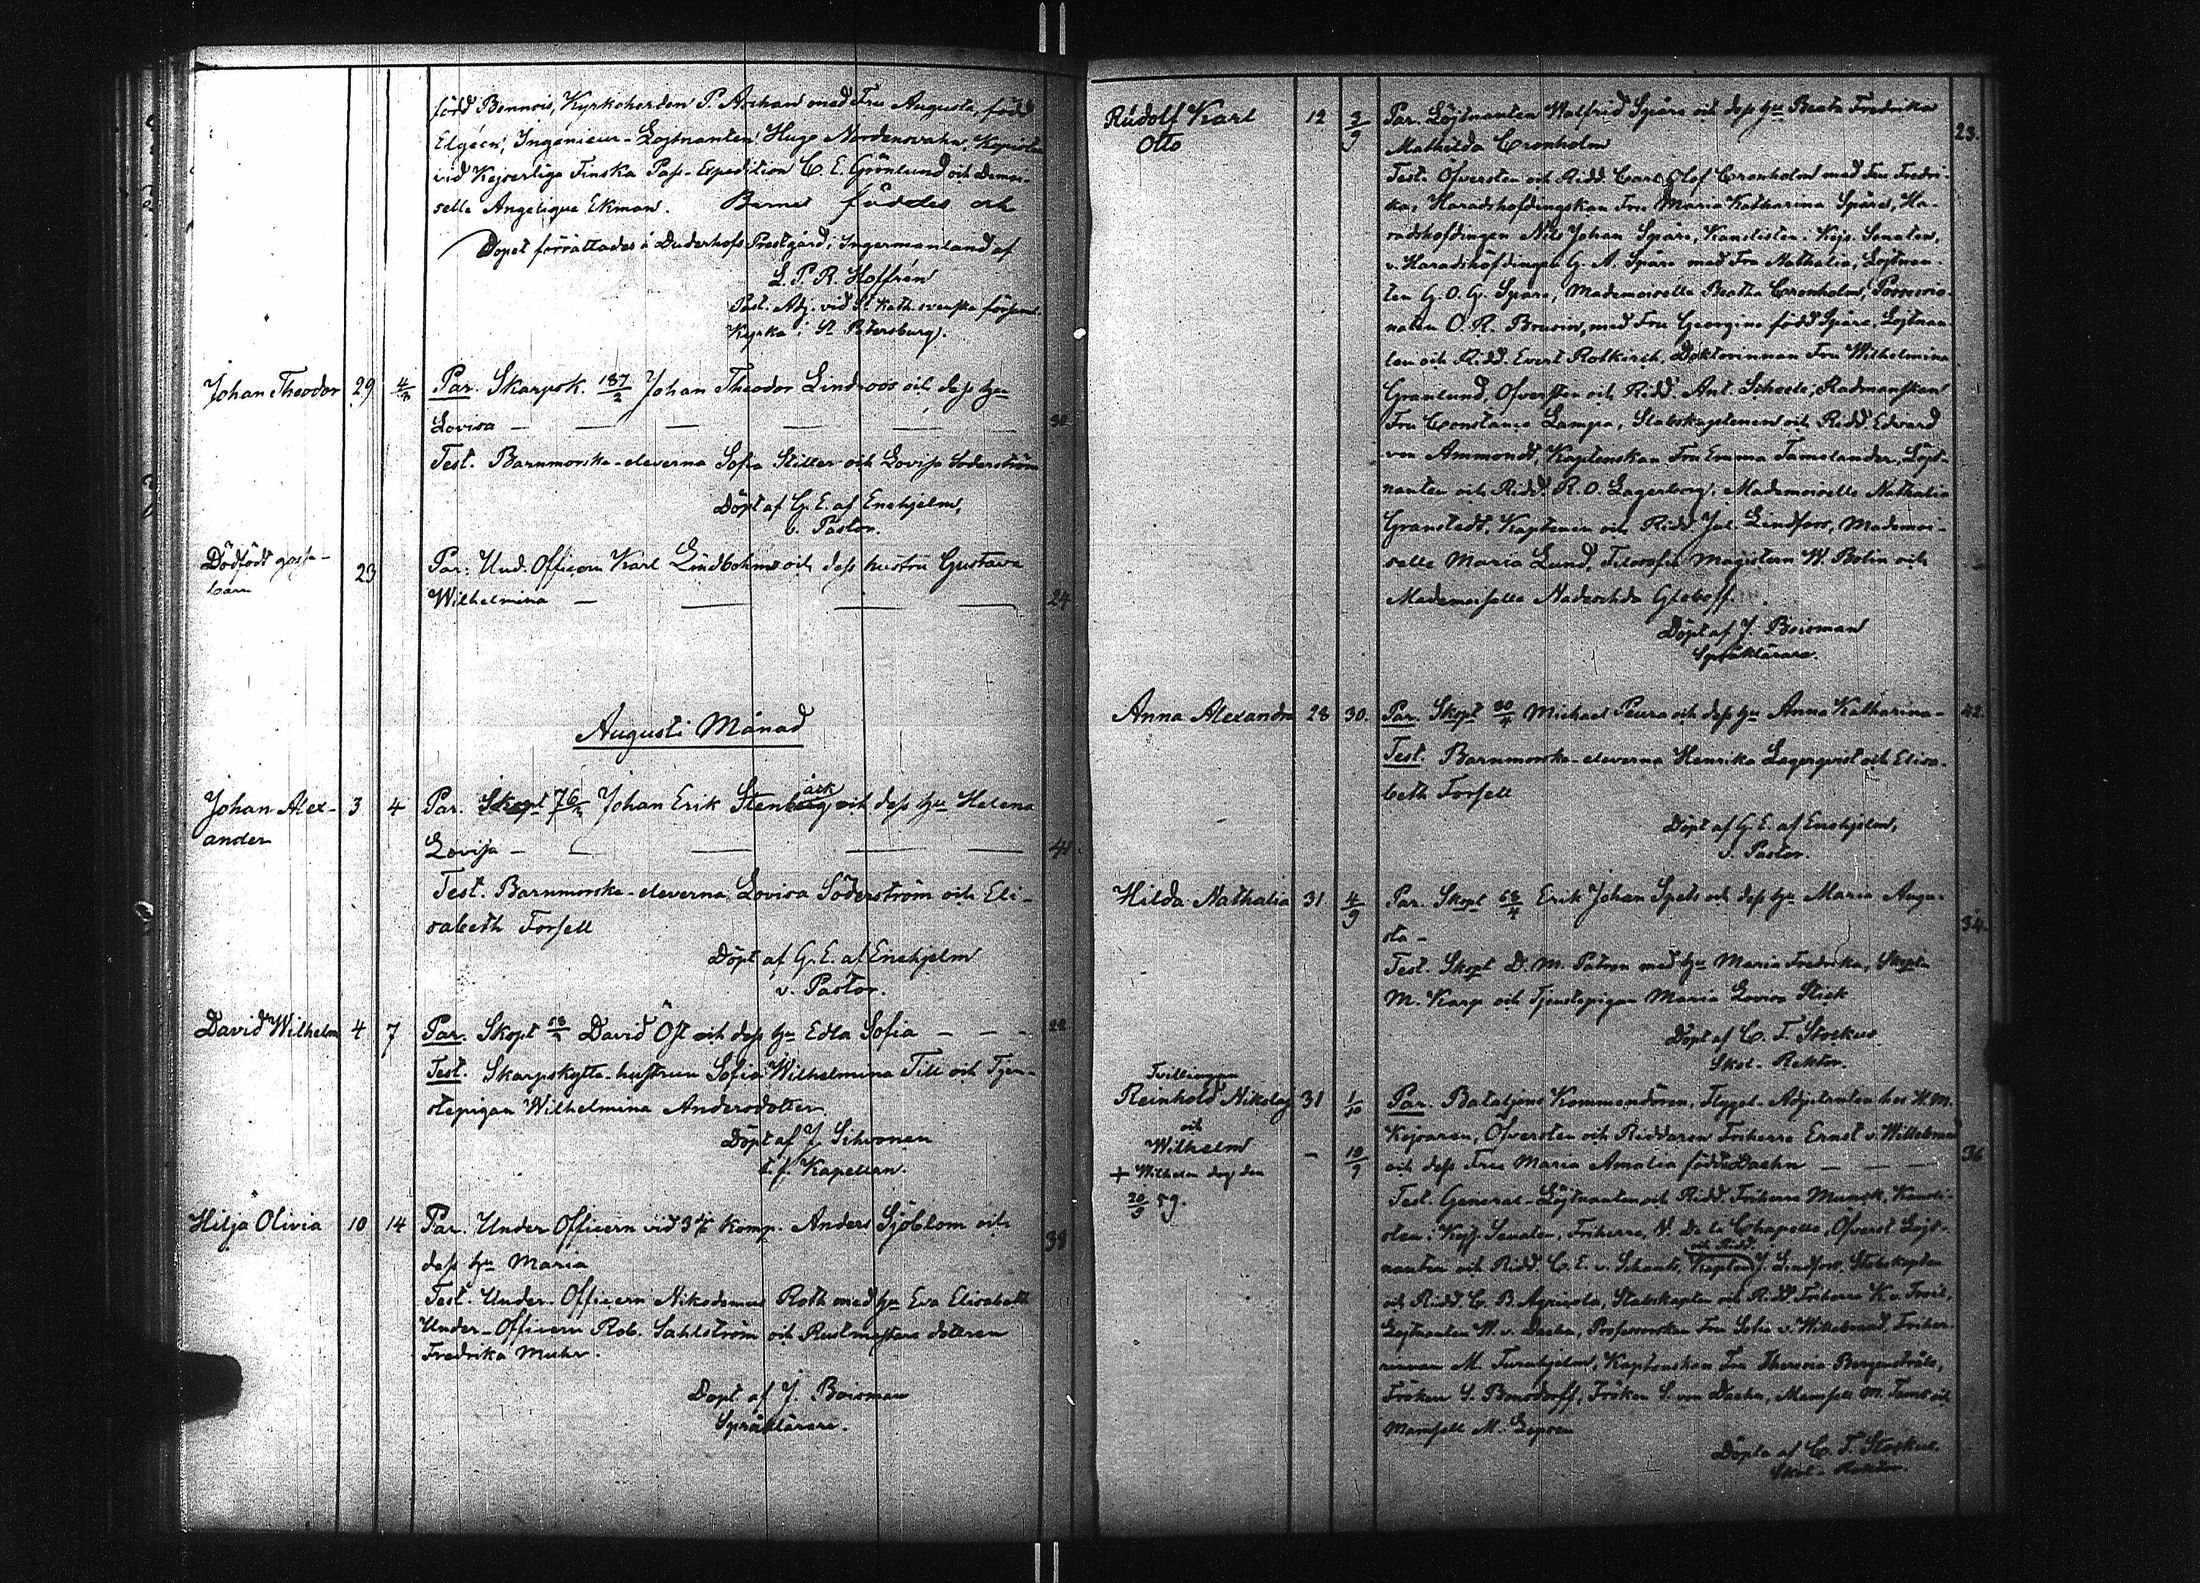 född Bonnois, Kyrkoherden P. Aschan med Fru Augusta, född
Elgéen, Ingenieur-Lojtnanten Hugo Nordensvahn, Kopisten
vid Kejserliga Finska Pass-Expedition C. E. Grönlund och Demoi-
selle Angelique Ekman. Barnet föddes och
Dopet förrättades å Duderhofs Prestgård, Ingermanland af
L. P. R. Hoffrén
Past. Adj. vid St Kath. svenska församl.
Kyrka i St Petersburg.
Johan Theodor 29 Par. Skarpsk. 187/2 Johan Theodor Lindroos och dess hu
Lovisa — — — — — — 30
Test. Barnmorske-eleverna Sofia Stiller och Lovisa Söderström
Döpt af G. E. af Enehjelm,
v. Pastor.
Dödfödt gosse- 23 Par. Und. Officern Karl Lindbohm och dess hustru Gustava
barn Wilhelmina — — — — 24
Augusti Månad
Johan Alex- 3 4 Par. Skspt 76/2 Johan Erik Stenberg och dess hu Helena
bäck
ander Lovisa — — — — — 41
Test. Barnmorske-eleverna Lovisa Söderström och Eli-
sabeth Forsell
Döpt af G. E. af Enehjelm
v. Pastor.
David Wilhelm 4 7 Par. Skspt David Öst och dess hu Edla Sofia — — — 22
Test. Skarpskytte-hustrun Sofia Wilhelmina Till och Tjen-
stepigan Wilhelmina Andersdotter
Döpt af J. Sihvonen
t. f. Kapellan.
Hilja Olivia 10 14 Par. Under Officern vid 3 Komp. Anders Sjöblom och 38
dess hu Maria
Test. Under-Officern Nikodemus Roth med hu Eva Elisabeth
Under-Officern Rob. Sahlström och Rustmästare dottren
Fredrika Muhr.
Döpt af J. Boisman
Språklärare.
Rudolf Karl 12 3/9 Par. Löjtnanten Walfrid Spåre och dess hu Beata Fredrika 23.
Otto Mathilda Cronholm
Test. Öfversten och Ridd. Carl Olof Cronholm med Fru Fredri-
ka, Häradshöfdingskan Fru Maria Katharina Spåre, Hä-
radshöfdingen Nils Johan Spåre, Kanslisten i Kejs. Senaten,
v. Häradshöfdingen G. A. Spåre med Fru Nathalia, Löjtnan-
ten G. O. G. Spåre, Mademoiselle Beatha Cronholm,
O. R. med Fru Georgine född Spåre, Lojtnan-
ten och Ridd. Evert Rotkirch, Doktorinnan Fru Wilhelmina
Granlund, Öfversten och Ridd. Ant. Schoels, Rådmanskan
Fru Constance Lampa, Stabskaptenen och Ridd. Edvard
von Ammondt, Kaptenskan Fru Emma Tamelander, Löjt-
nanten och Ridd. R. O. Lagerborg, Mademoiselle Nathalia
Granstedt, Kaptenen och Ridd. Jul. Lindfors, Mademoi-
selle Maria Lund, Filosofie Magistern W. Bolin och
Mademoiselle Nadeschda Gleboff.
Döpt af J. Boisman
Språklärare.
Anna Alexandra 28 30. Par. Skspt 30/4 Michael Peura och dess hu Anna Katharina — 42.
Test. Barnmorske-eleverna Henrika Lagerqvist och Elisa-
beth Forsell
Döpt af G. E. af Enehjelm,
v. Pastor.
Hilda Nathalia 31 4/9 Par. Skspt 58/4 Erik Johan Spets och dess hu Maria Augu-
sta — 34.
Test. Skspt D. M. med hu Maria Fredrika, Skspt
M. Karp och Tjenstepigan Maria Lovisa Stick
Döpt af C. F. Storkus.
Skol-Rektor.
Tvillingar
Reinhold Nikolaj 31 Par. Bataljons Kommendören, Flygel-Adjutanten hos H. M.
och Kejsaren, Öfversten och Riddaren Friherre Ernst v. Willebrand
Wilhelm — 10/9 och dess Fru Maria Amalia född Daehn — — — 36
+ Wilhelm dog den Test. General-Löjtnanten och Ridd. Friherre Munck, Kansli-
20/9 59. sten i Kejs. Senaten, Friherre, V. De la Chapelle, Öfverst Löjt-
och Ridd.
nanten och Ridd. C. E. v. Schantz, Kapten J. Lindfors, Stabskapten
och Ridd. C. B. Agricola, Stabskapten och Ridd. Friherre K. v. Troil,
Lojtnanten W. v. Daehn, Professorskan Fru Sofia v. Willebrand, Friher-
rinnan M. Furuhjelm, Kaptenskan Fru Theresia Bergenstråle,
Fröken S. Bonsdorff, Fröken S. von Daehn, Mamsell M. och
Mamsell M.
Döpte af C. F. Storkus
Skol-Rektor.